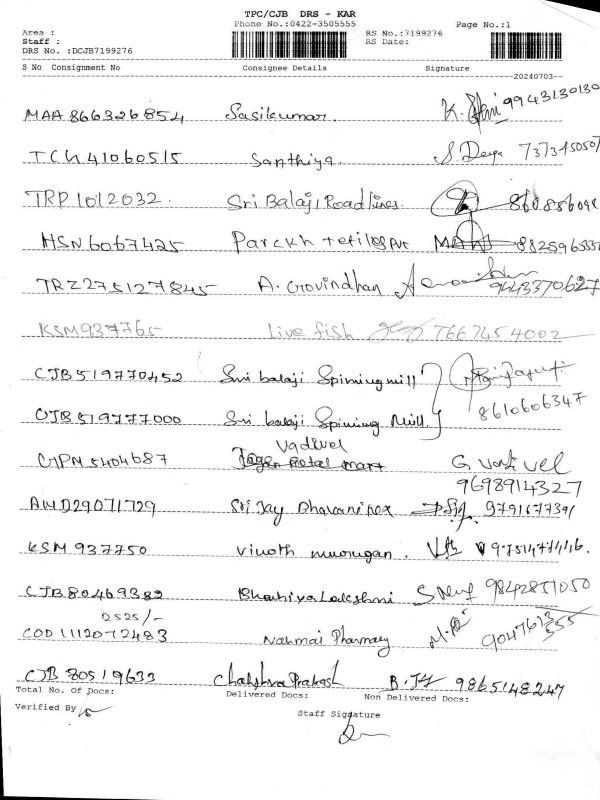 TPC/CJB DRS - KAR
Phone No.:0422-3505555
Page No.:1
Area :
Staff :
DRS No. :DCJB7199276
RS No.:7199276
RS Date:
S No Consignment No Consignee Details Signature
20240703
MAA 866326854 Sasikumar. K. 9943130130
TCH 41060515 Santhiya. S. Deepa 737345050
TRP 1012032 Sri Balaji Roadlines. 860886098
HSN 6067425 Parekh tetiles Pvt MANI 882596553
TRZ 275127845 A. Govindhan 9443370627
KSM 937765 Live fish 7667454002
CJB 519770452 Sri balaji Spinning mill
CJB 519777000 Sri balaji Spining Mill 8610606347
Vadivel
CJPN 5404687 G. Vadivel
9698914327
AWD29071729 Sri Jay Bhavani pex 9791677391
KSM 937750 Vinoth murugan.
CJB80469382 Bhathiya Lakshmi 9842851050
2525/-
COD 1112072483 Nammai Pharmacy
CJB 80519633 Prakash 9865148247
Total No. Of Docs: Delivered Docs: Non Delivered Docs:
Verified By
Staff Signature